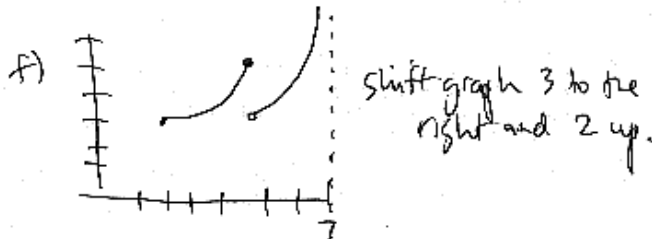 f)
shift graph 3 to the
right and 2 up.
7